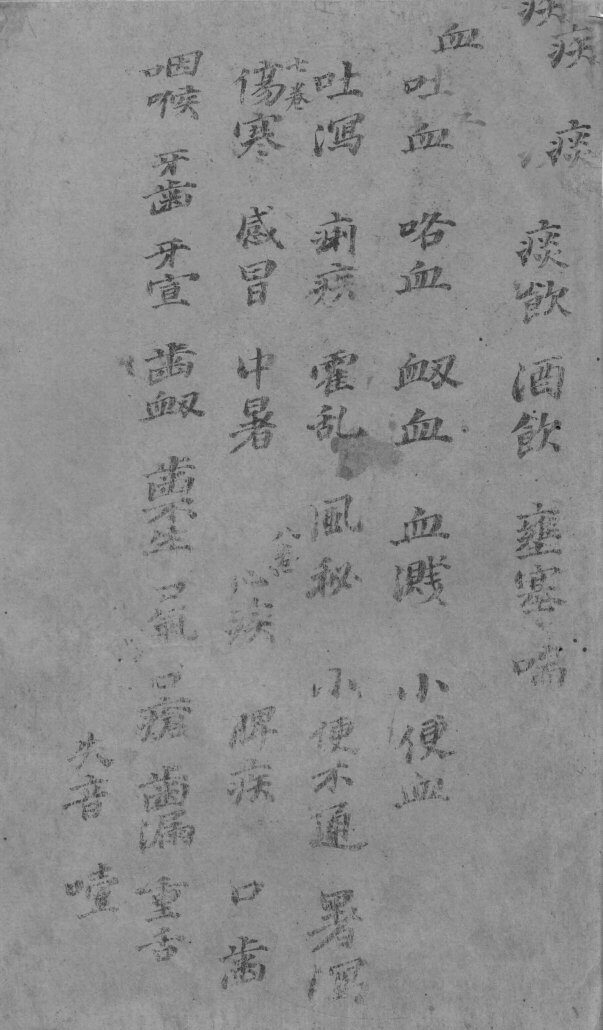 痰 痰飲 酒飲 壅塞 喘
血 吐血 咯血 衄血 血濺 小便血
吐瀉 痢疾 霍乱 風秘 小便不通 暑
七卷
傷寒 感冒 中暑 心疾 脾疾 口齒
咽喉 牙齒 牙宣 齒衄 齒不生 口氣 口瘡 齒漏 重舌
失音 噎